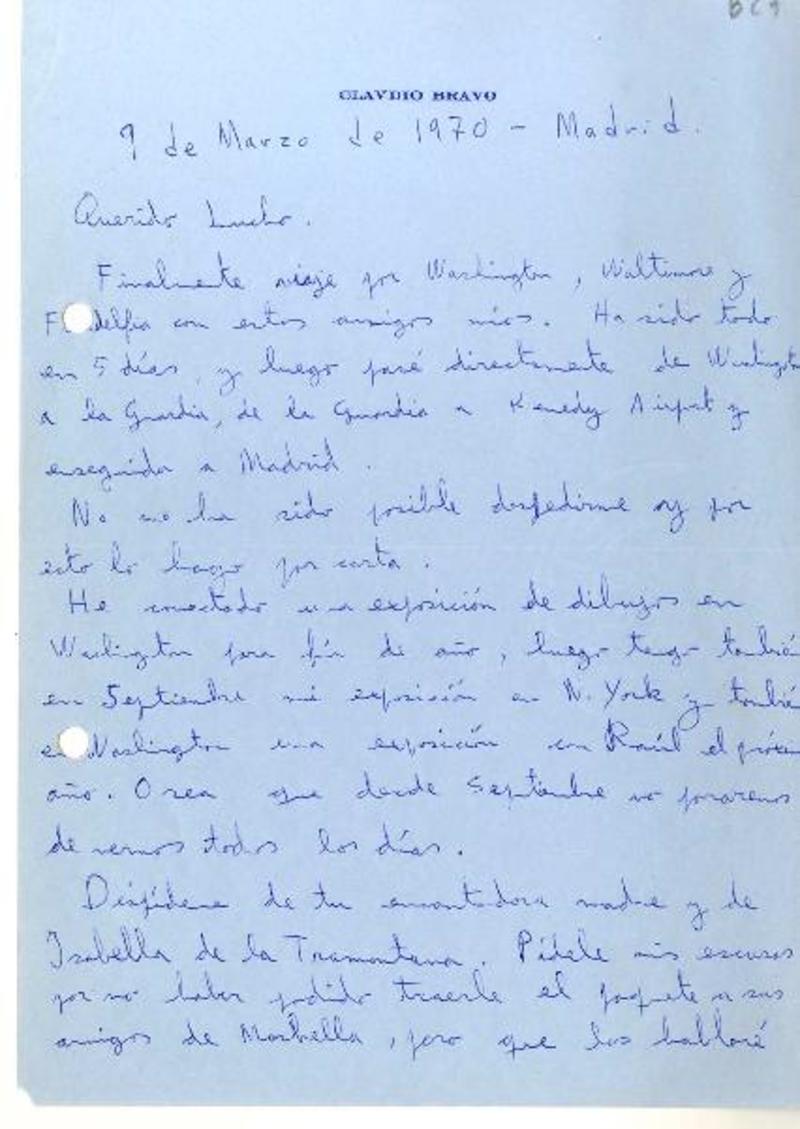 CLAVDIO BRAVO
9 de Marzo de 1970 - Madrid.
Querido Lucho.
Finalmente viaje por Washington, Waltimore y
F delfia con estos amigos míos. Ha sido todo
en 5 días, y luego pasé directamente de Washingto
a la Guardia, de la Guardia a Kenedy Airport y
enseguida a Madrid.
No me ha sido posible despedirme y por
esto lo hago por carta.
He conectado una exposición de dibujos en
Washington para fin de año, luego tengo tambié
en Septiembre mi exposición en N. York y tambié
en Washington una exposición con Raúl el próxi
año. O sea que desde Septiembre no pararemos
de vernos todos los días.
Despídeme de tu encantadora madre y de
Isabella de la Tramontana. Pídele mis escusas
por no haber podido traerle el paquete a sus
amigos de Marbella, pero que los hablaré